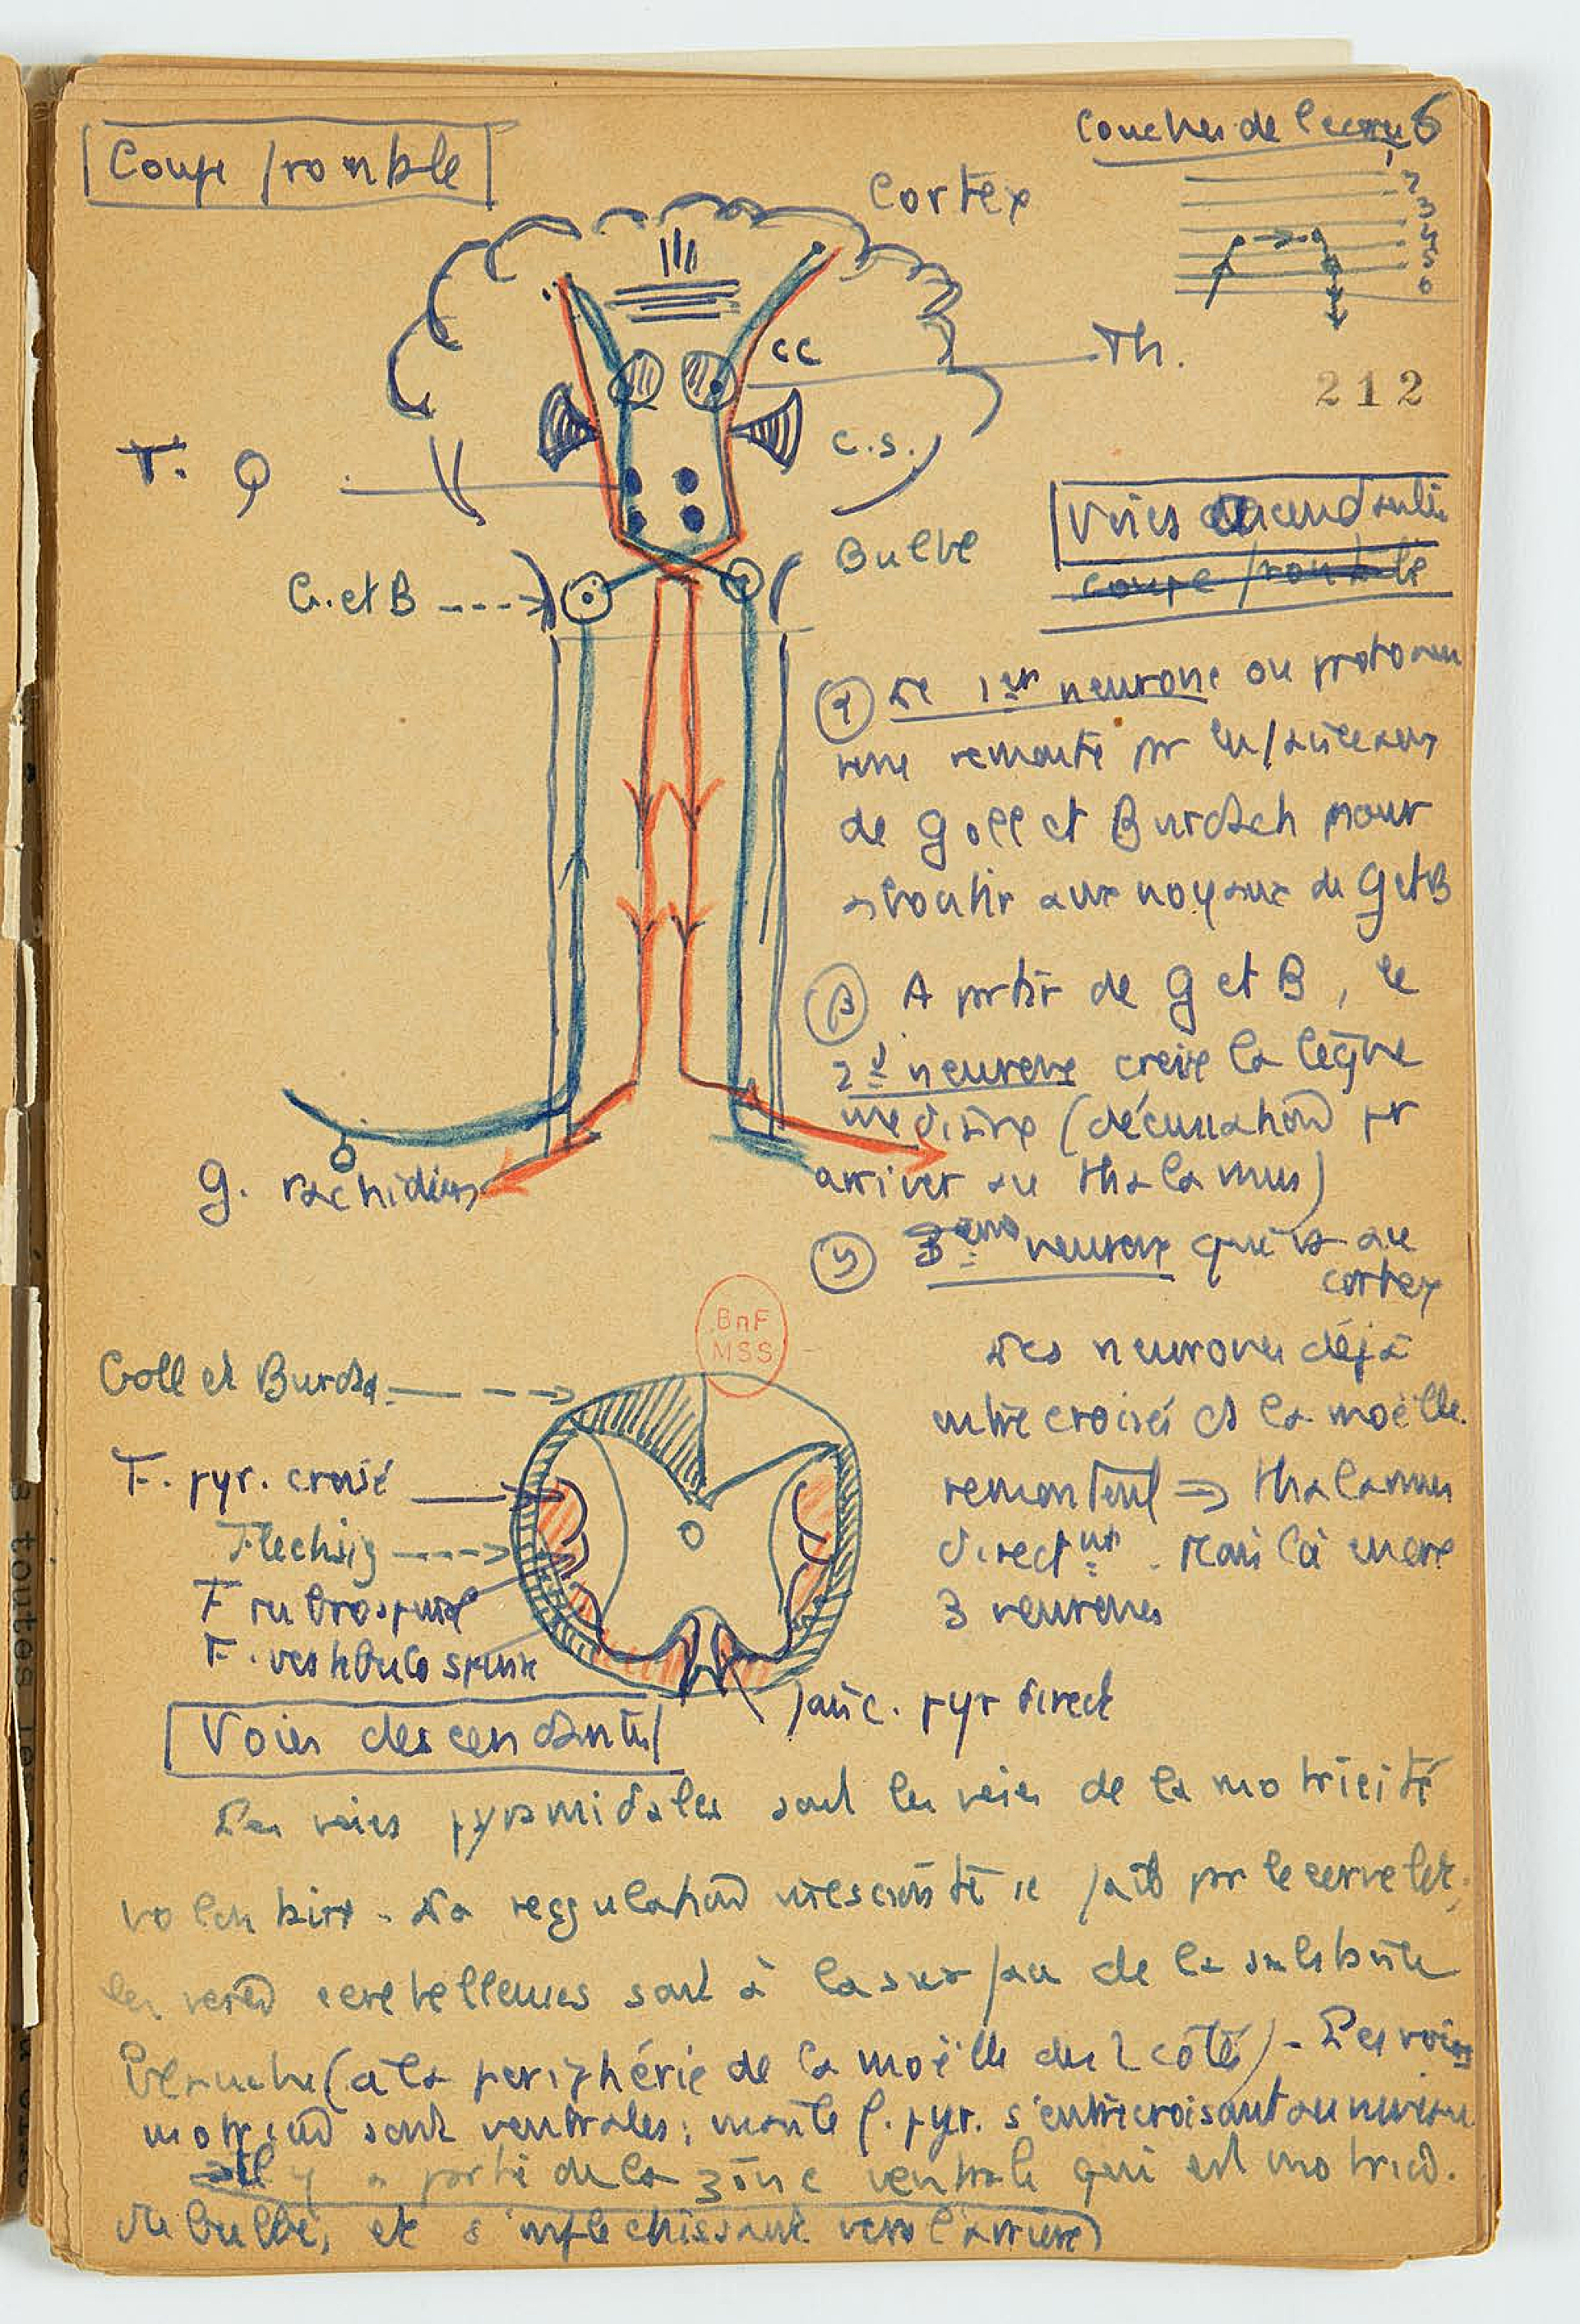 Coupe frontale
Couches de l'écorce
6
2
3
4
5
6
Cortex
cc
Th.
212
c.s.
T. Q
Bulbe
G. et B
Voies ascendantes
coupe frontale
α Le 1er neurone ou protoneu
rone remonte pr les faisceaux
de Goll et Burdach pour
aboutir aux noyaux de G et B
β A partir de G et B, le
2d neurone croise la ligne
médiane (décussation pr
arriver au thalamus)
γ 3eme neurone qui va au
cortex
g. rachidien
BnF
MSS
Des neurones déjà
entrecroisés ds la moëlle
remontent ⇒ thalamus
directnt. Mais là encore
3 neurones
Goll et Burda.
F. pyr. croisé
Flechsig
F rubrospinal
F. vestibulo spinal
faisc. pyr direct
Voies descendantes
Les voies pyramidales sont les voies de la motricité
volontaire. La regulation se fait par le cervelet,
les voies cerebelleuses sont à la surface de la substance
blanche (à la periphérie de la moëlle des 2 côtés) - Les voies
motrices sont ventrales; f. pyr. s'entrecroisant au niveau
⇒ Il y a partie de la zone ventrale qui est motrice.
du bulbe, et s'inflechissant vers l'arrière)